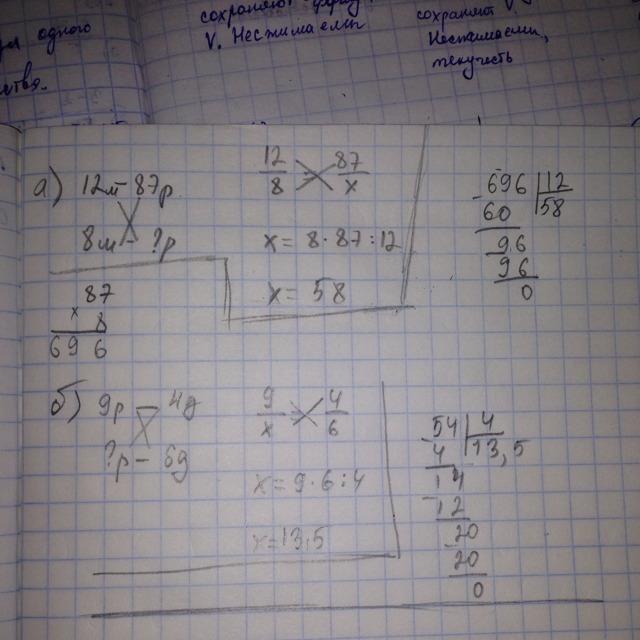 сохраняют форму
V. Несжимаемы
сохраняет V
Несжимаемы,
текучесть
одного
а) 12м – 87р
8м – ?р
12/8 = 87/x
x = 8·87:12
x = 58
87
× 8
696
- 696 | 12
60 58
- 96
96
0
б) 9р – 4д
?р – 6д
9/x = 4/6
x = 9·6:4
x = 13,5
- 54 | 4
4 13,5
14
- 12
20
20
0